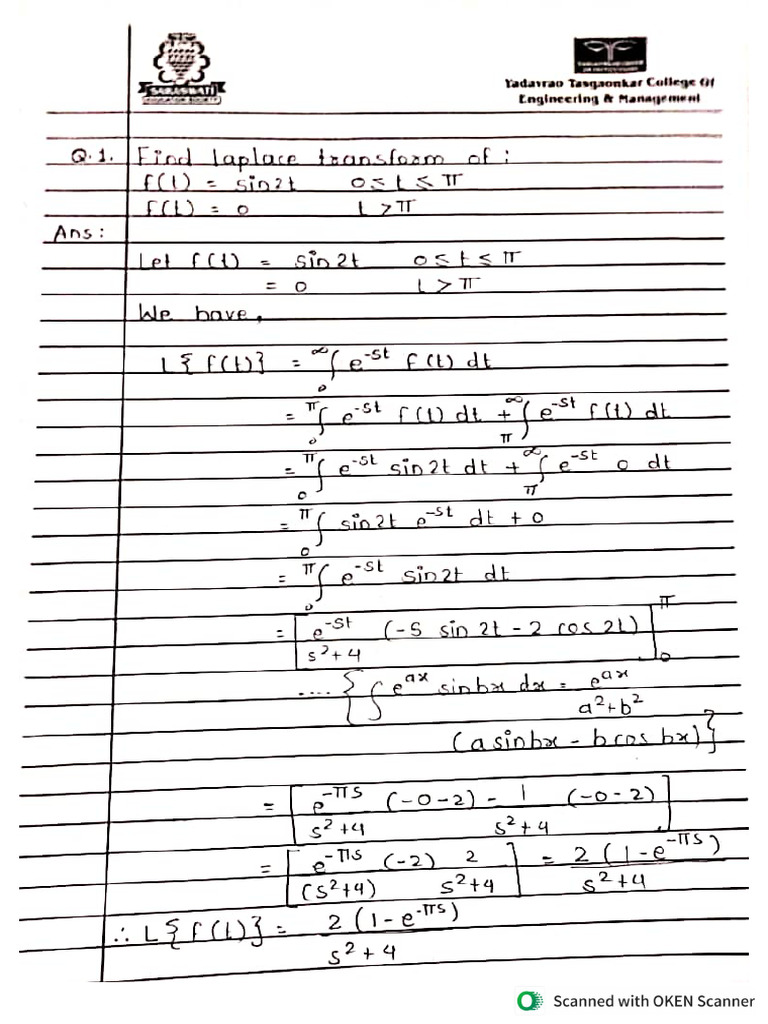 SARASWATI
EDUCATION SOCIETY
Yadavrao Tasgaonkar College Of
Engineering & Management
Q.1. Find laplace transform of :
f(t) = sin2t 0 ≤ t ≤ π
f(t) = 0 t > π
Ans :
Let f(t) = sin2t 0 ≤ t ≤ π
= 0 t > π
We have,
L{f(t)} = ∞∫0 e^-st f(t) dt
= π∫0 e^-st f(t) dt + ∞∫π e^-st f(t) dt
= π∫0 e^-st sin2t dt + ∞∫π e^-st 0 dt
= π∫0 sin2t e^-st dt + 0
= π∫0 e^-st sin2t dt
= [e^-st/s²+4 (-s sin 2t - 2 cos 2t)]π 0
.... {∫e^ax sinbx dx = e^ax/a²+b²
(a sinbx - b cos bx)}
= [e^-πs/s²+4 (-0-2) - 1/s²+4 (-0-2)]
= [e^-πs/(s²+4) (-2) 2/s²+4] = 2(1-e^-πs)/s²+4
∴ L{f(t)} = 2(1-e^-πs)/s²+4
Scanned with OKEN Scanner